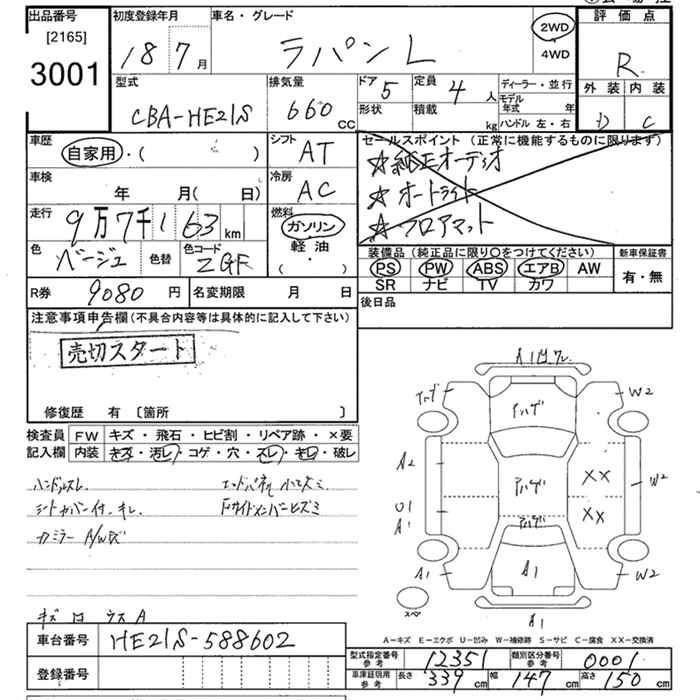 出品番号 初度登録年月 車名・グレード 評価点
[2165]
3001 18 7月 ラパンL 2WD 4WD R
型式 排気量 ドア 5 定員 4 人 ディーラー・並行 外装 内装
CBA-HE21S 660 CC 形状 積載 kg モデル年式 年 ハンドル 左・右 D C
車歴 自家用・( ) シフト AT セールスポイント (正常に機能するものに限ります)
☆純正オーディオ
車検 年 月(日) 冷房 AC ☆オートライト
走行 9万7千163 km 燃料 ガソリン 軽油 ・( ) ☆フロアマット
色 ベージュ 色替 色コード ZGF 装備品 (純正品に限り〇をつけてください) 新車保証書
PS PW ABS エアB AW 有・無
SR ナビ TV カワ
R券 9080 円 名変期限 月 日 後日品
注意事項申告欄(不具合内容等は具体的に記入して下さい)
売切スタート
修復歴 有 〔箇所 〕
検査員 FW キズ・飛石・ヒビ割・リペア跡・×要
記入欄 内装 キズ・汚レ・コゲ・穴・スレ・キレ・破レ
ハンドルスレ
シートカバー付、キレ
A1
W2
アハゲ
A2
XX
W2
アハゲ
U1
A1
XX
アハゲ
A1
A1
W2
スペア
A1
キズ
A-キズ E-エクボ U-凹み W-補修跡 S-サビ C-腐食 XX-交換済
車台番号 HE21S-588602
登録番号
型式指定番号 参考 12351 類別区分番号 参考 0001
車庫証明用 参考 長さ 339 cm 幅 147 cm 高さ 150 cm